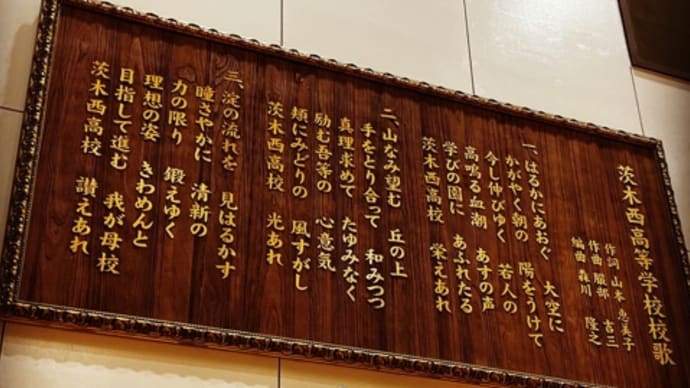 茨木西高等学校校歌
作詞 山本 恵美子
作曲 服部 吉三
編曲 森川 隆之
一、はるかにあおぐ 大空に
かがやく朝の 陽をうけて
今し伸びゆく 若人の
高鳴る血潮 あすの声
学びの園に あふれたる
茨木西高校 栄えあれ
二、山なみ望む 丘の上
手をとり合って 和みつつ
真理求めて たゆみなく
励む吾等の 心意気
頬にみどりの 風すがし
茨木西高校 光あれ
三、淀の流れを 見はるかす
瞳さやかに 清新の
力の限り 鍛えゆく
理想の姿 きわめんと
目指して進む 我が母校
茨木西高校 讃えあれ